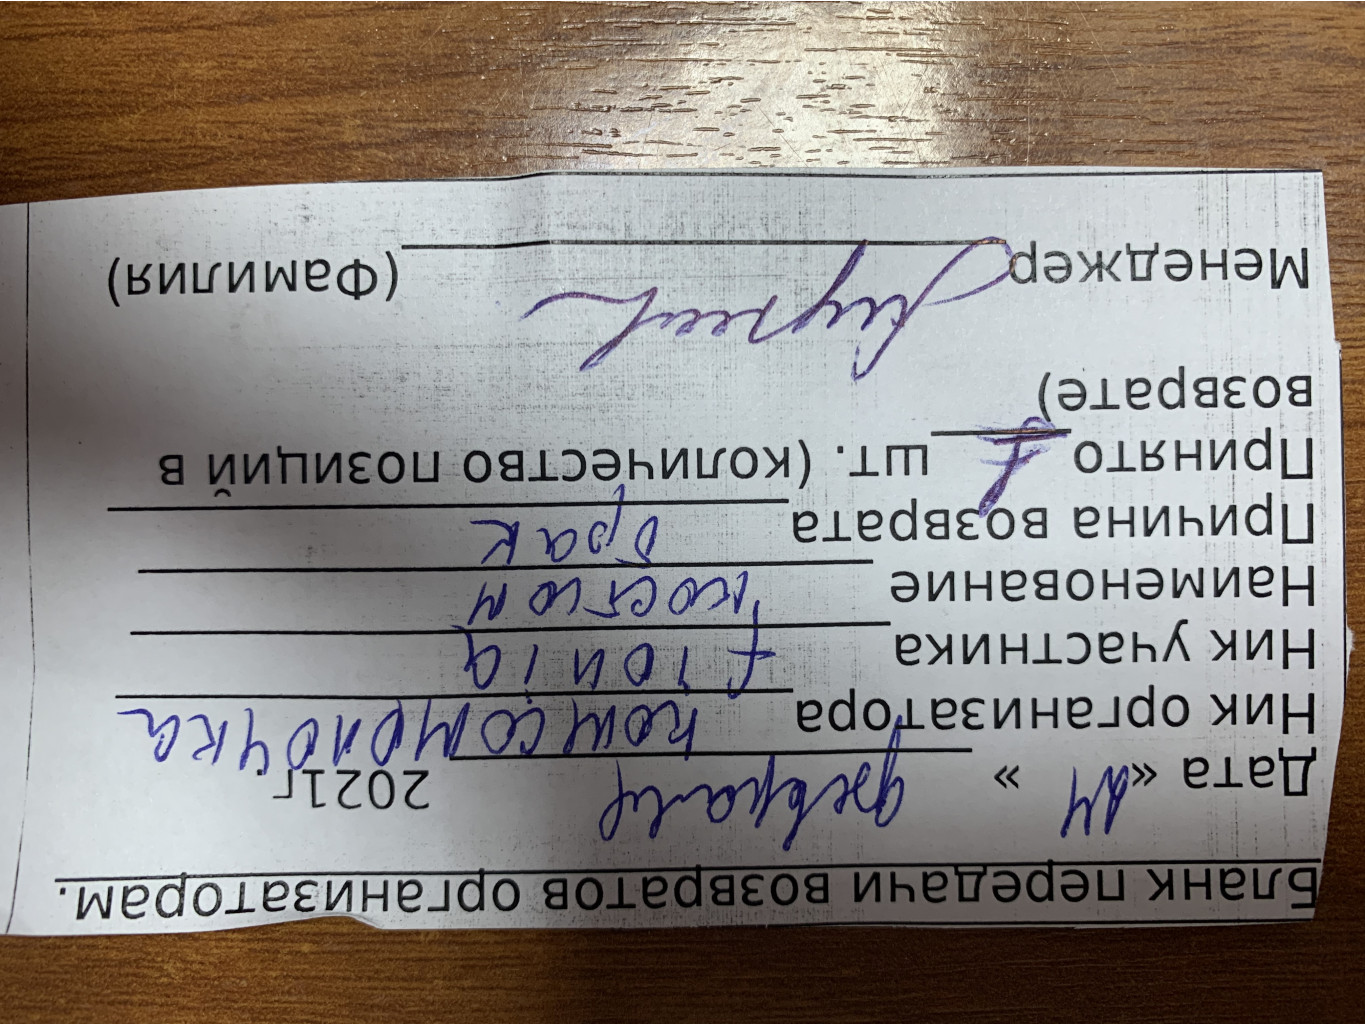 Бланк передачи возвратов организаторам.
Дата « 24 » февраля 2021г.
Ник организатора комсомолочка
Ник участника fionia
Наименование костюм
Причина возврата брак
Принято 1 шт. (количество позиций в
возврате)
Менеджер (Фамилия)